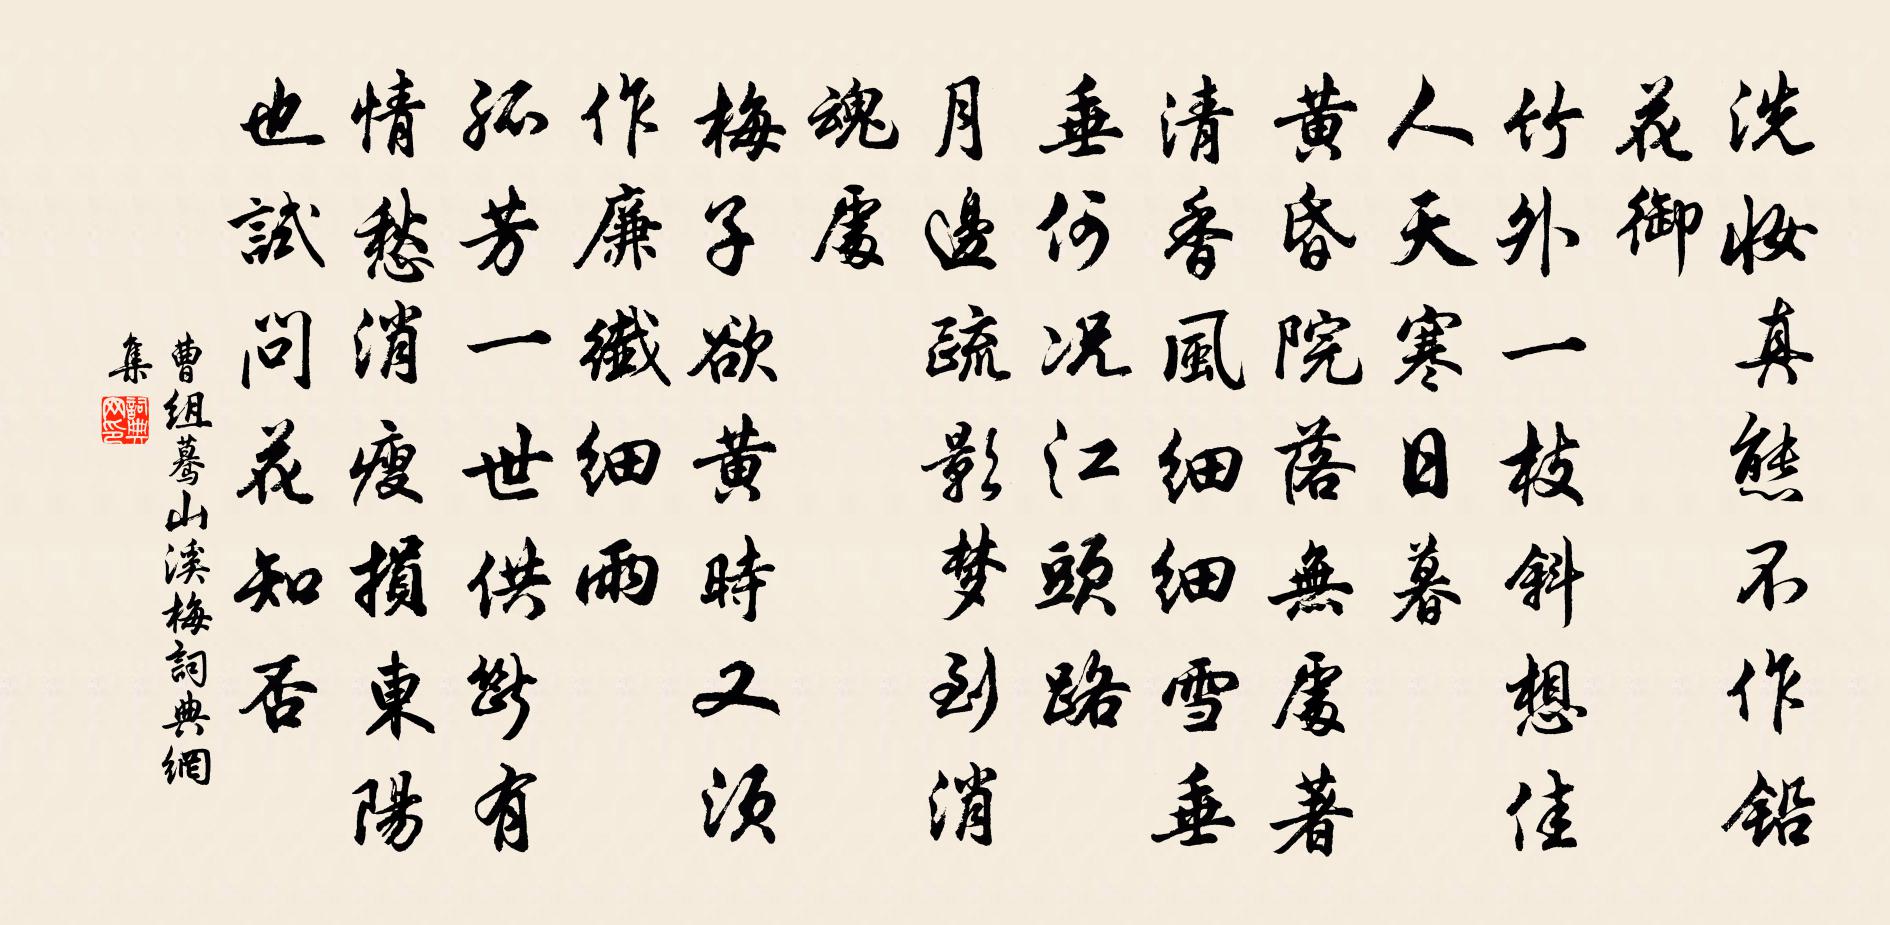 洗妝真態不作鉛
花御
竹外一枝斜想佳
人天寒日暮
黄昏院落無處著
清香風細細雪垂
垂何况江頭路
月邊疏影梦到消
魂處
梅子欲黄時又須
作廉纖細雨
孤芳一世供斷有
情愁消瘦損東陽
也試問花知否
曹組驀山溪梅詞典網
集
詞典
网印